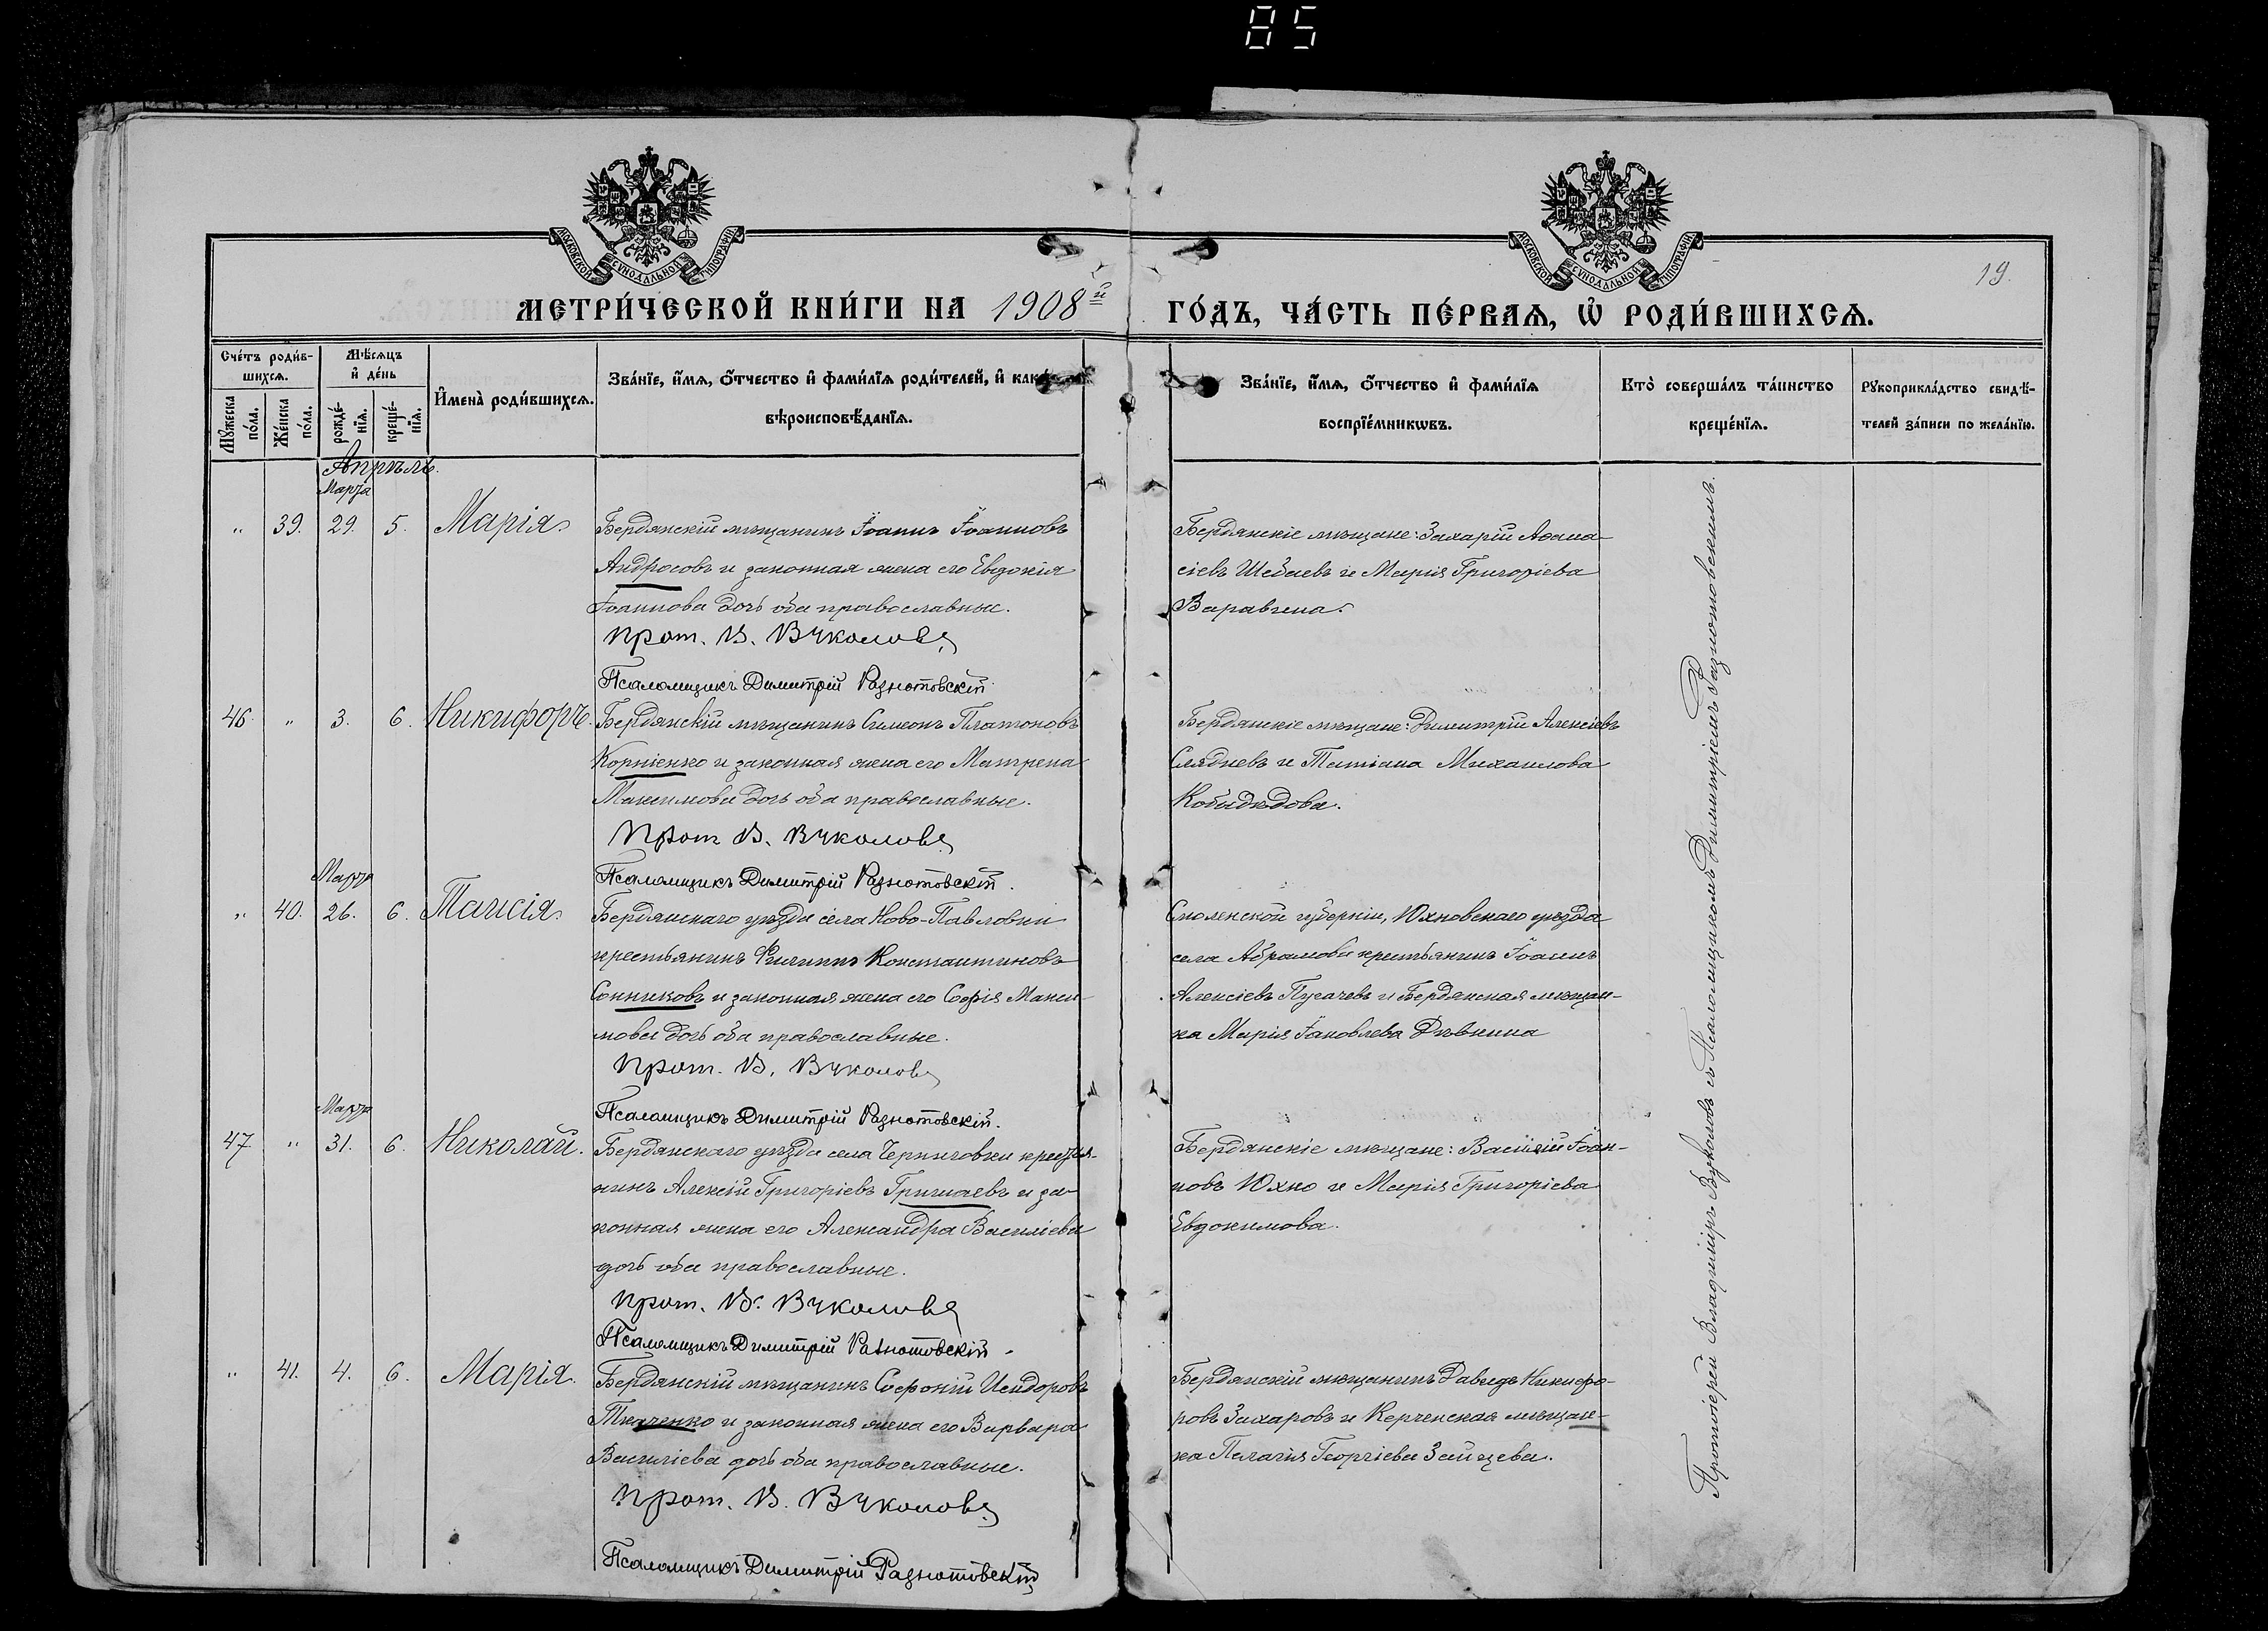 85
МОСКОВСКОЙ СѴНОДАЛЬНОЙ ТИПОГРАФІИ
МОСКОВСКОЙ СѴНОДАЛЬНОЙ ТИПОГРАФІИ
19.
МЕТРИ́ЧЕСКОЙ КНИ́ГИ НА 1908й ГО́ДЪ, ЧА́СТЬ ПЕ́РВАѦ, Ѡ҆ РОДИ́ВШИХСѦ.
Сче́тъ роди́в-
шихсѧ.
Мѣ́сѧцъ
и҆ де́нь
И҆мена̀ роди́вшихсѧ.
Зва́нїе, и҆́мѧ, ѻ҆́тчество и҆ фами́лїѧ роди́телей, и҆ как
вѣроисповѣ́данїѧ.
Зва́нїе, и҆́мѧ, ѻ҆́тчество и҆ фами́лїѧ
воспрїе́мникѡвъ.
Кто̀ соверша́лъ та́инство
креще́нїѧ.
Рꙋкоприкла́дство свидѣ́-
телей за́писи по жела́нїю.
Мꙋ́жеска
по́ла.
Же́нска
по́ла.
рожде́-
нїѧ.
креще́-
нїѧ.
Апрѣль.
Марта
" 39. 29. 5. Марія. Бердянскій мѣщанинъ Іоаннъ Іоанновъ
Андросовъ и законная жена его Евдокія
Іоаннова дочь оба православные.
Прот. В. Вуколовъ
Псаломщикъ Димитрій Разнотовскій
Бердянскіе мѣщане: Захарій Аѳана-
сіевъ Шебаевъ и Марія Григоріева
Варавчена.
46. " 3. 6. Никифоръ. Бердянскій мѣщанинъ Симеонъ Платоновъ
Корніенко и законная жена его Матрена
Максимова дочь оба православные.
Прот В. Вуколовъ
Псаломщикъ Димитрій Разнотовскій.
Бердянскіе мѣщане: Димитрій Алексіевъ
Слядневъ и Татіана Михаилова
Кобыдѣдова.
Марта
" 40. 26. 6. Таисія. Бердянскаго уѣзда села Ново-Павловки
крестьянинъ Филиппъ Константиновъ
Сонниковъ и законная жена его Софія Макси-
мова дочь оба православные.
Прот. В. Вуколовъ
Псаломщикъ Димитрій Разнотовскій.
Смоленской губерніи, Юхновскаго уѣзда
села Абрамова крестьянинъ Іоаннъ
Алексіевъ Пугачевъ и Бердянская мѣщан-
ка Марія Іаковлева Дѣвкина
Марта
47 " 31. 6. Николай. Бердянскаго уѣзда села Черниговки крестья-
нинъ Алексій Григоріевъ Гришаевъ и за-
конная жена его Александра Василіева
дочь оба православные.
Прот. В. Вуколовъ
Псаломщикъ Димитрій Разнотовскій.
Бердянскіе мѣщане: Василій Іоан-
новъ Юхно и Марія Григоріева
Евдокимова.
" 41. 4. 6. Марія. Бердянскій мѣщанинъ Софоній Исидоровъ
Ткаченко и законная жена его Варвара
Василіева дочь оба православные.
Прот. В. Вуколовъ
Псаломщикъ Димитрій Разнотовскій
Бердянскій мѣщанинъ Давидъ Никифо-
ровъ Захаровъ и Керченская мѣщан-
ка Пелагія Георгіева Зайцева.
Протоіерей Владиміръ Вуколовъ съ Псаломщикомъ Димитріемъ Разнотовскимъ.